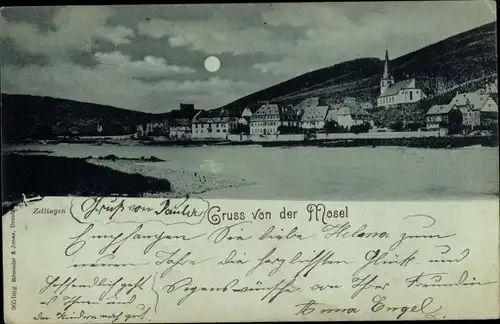 Zeltingen
Gruss von der Mosel
Gruß von Pauler
Empfangen Sie liebe Helena zum
neuen Jahre die herzlichsten Glück- und
Segenswünsche von Ihrer Freundin
Anna Engel
Hoffendlich geht
es Ihnen und
den Kindern noch gut
Römmler & Jonas, Dresden